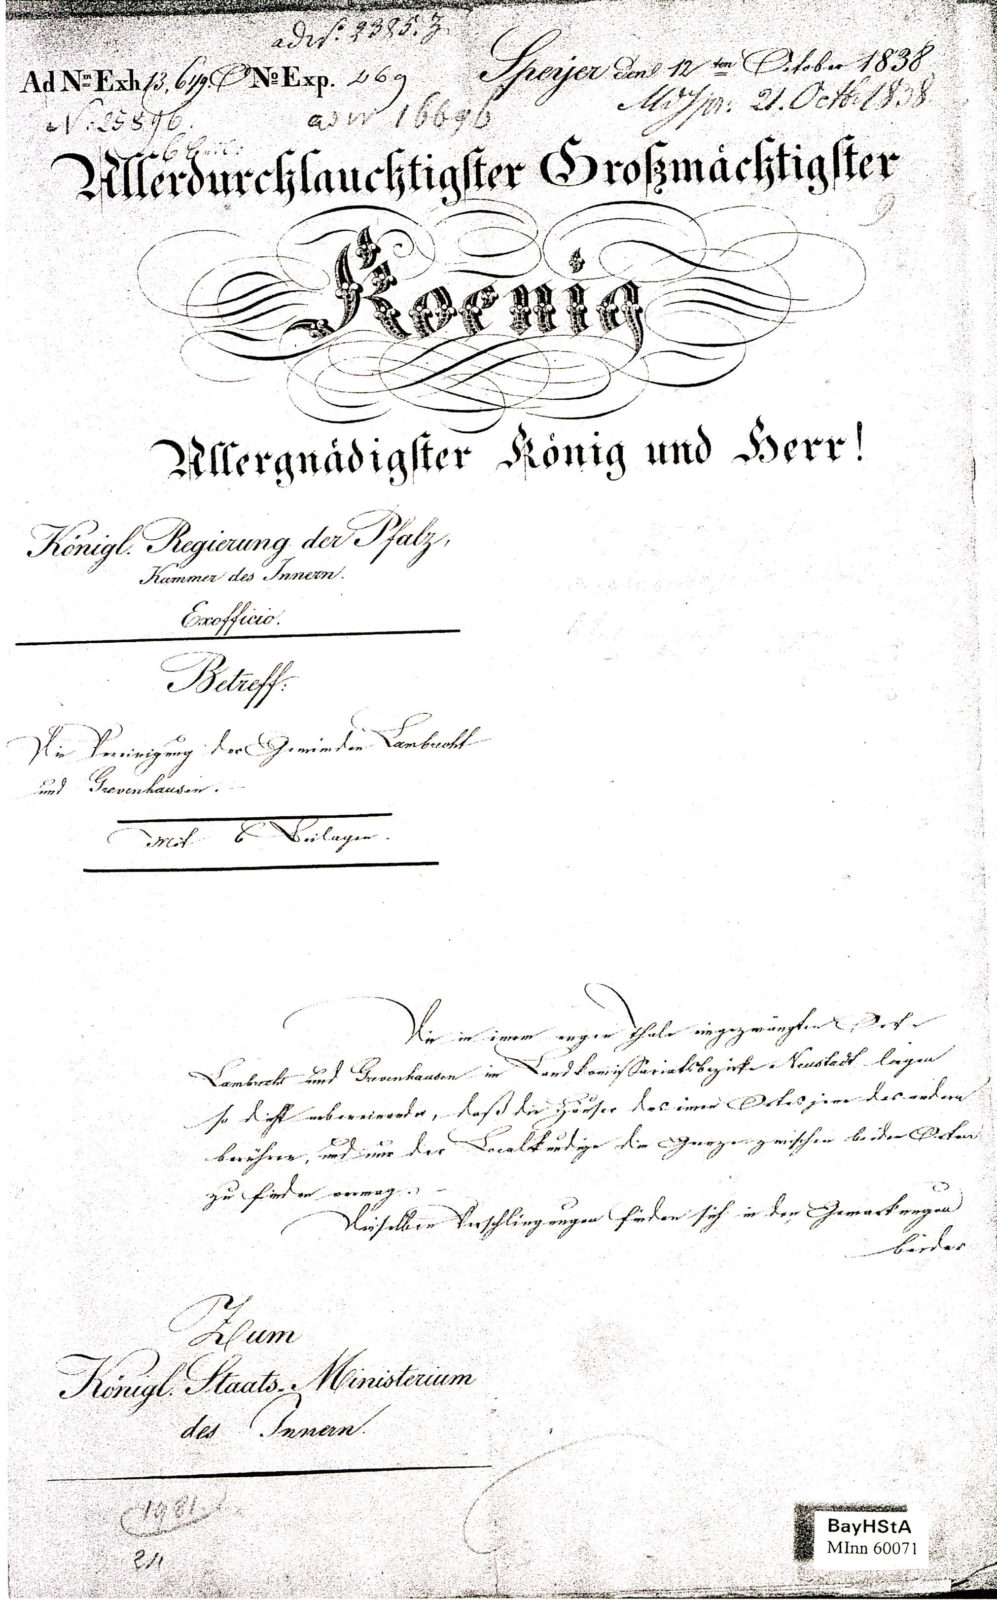 ad N. 2385. Z.
Ad Nm Exh 13,649 O No Exp. 269 Speyer den 12ten October 1838
21. Octb 1838
N. 25896. ad N 16696
Allerdurchlauchtigster Großmächtigster
9
Koenig
Allergnädigster König und Herr!
Königl. Regierung der Pfalz,
Kammer des Innern.
Exofficio.
Betreff:
Die Vereinigung der Gemeinden Lambrecht
und Grevenhausen.
Mit 6 Beilagen.
Die in einem engen Thale eingezwängten Orte
Lambrecht und Grevenhausen im Landkomissariatsbezirke Neustadt liegen
so dicht nebeneinander, daß die Häuser des einen Ortes jene des andern
berühren, und nur der Localkundige die Grenze zwischen beiden Orten
zu finden vermag.
Dieselben Verschlingungen finden sich in den Gemarkungen
beider
Zum
Königl. Staats-Ministerium
des Innern.
1981
24
BayHStA
MInn 60071